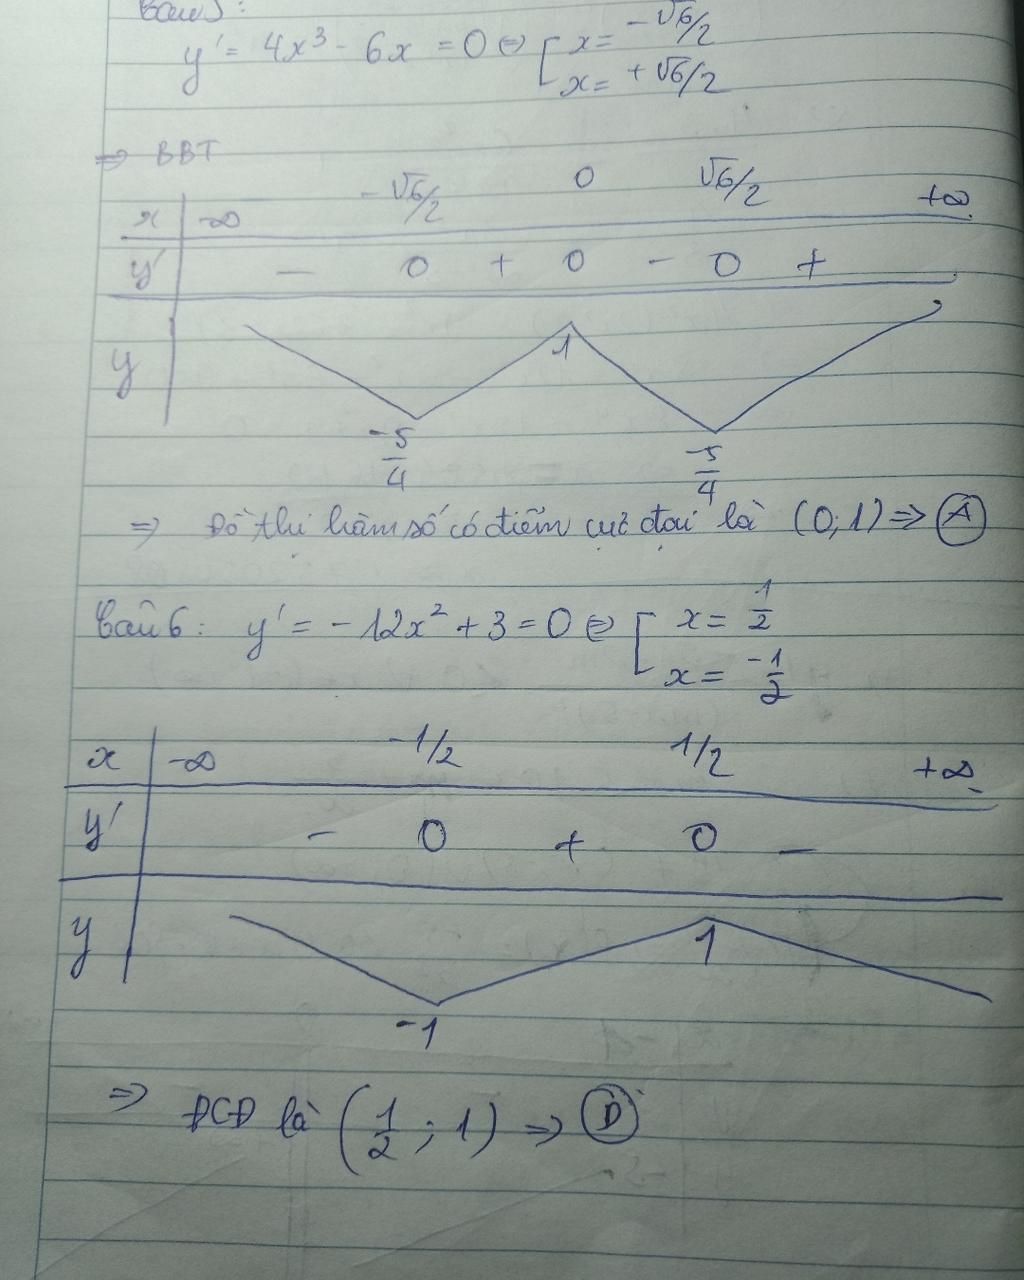 Câu 5:
y' = 4x³ - 6x = 0 ⇔ [ x = -√6/2
x = +√6/2
⇒ BBT
x -∞ -√6/2 0 √6/2 +∞
y' - 0 + 0 - 0 +
y 1
-5/4 -5/4
⇒ Đồ thị hàm số có điểm cực đại là (0;1) ⇒ A
Câu 6: y' = -12x² + 3 = 0 ⇔ [ x = 1/2
x = -1/2
x -∞ -1/2 1/2 +∞
y' - 0 + 0 -
y 1
-1
⇒ ĐCĐ là (1/2 ; 1) ⇒ D